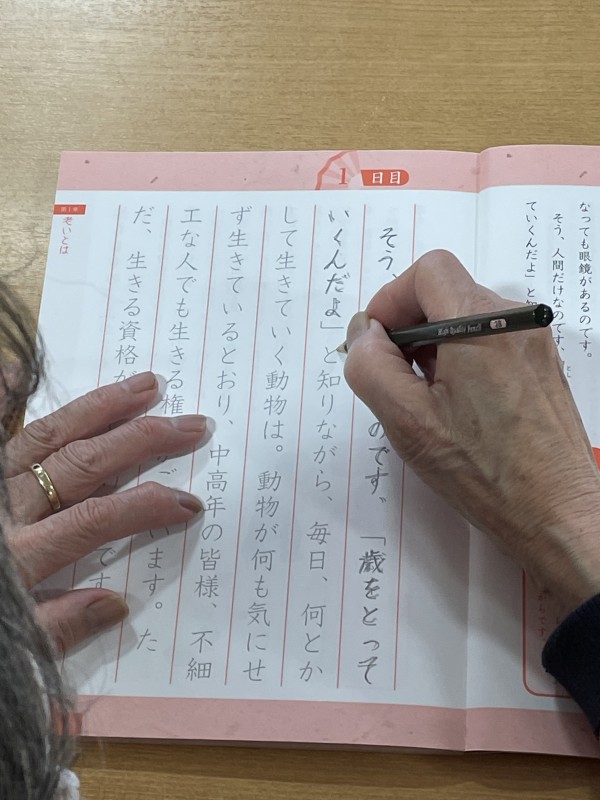 なっても眼鏡があるのです。
そう、人間だけなのです、
ていくんだよ」と
1日目
そう、のです、「歳をとって
いくんだよ」と知りながら、毎日、何とか
して生きていく動物は。動物が何も気にせ
ず生きているとおり、中高年の皆様、不細
工な人でも生きる権 います。た
だ、生きる資格が です
第1章
老いとは
High Quality Pencil